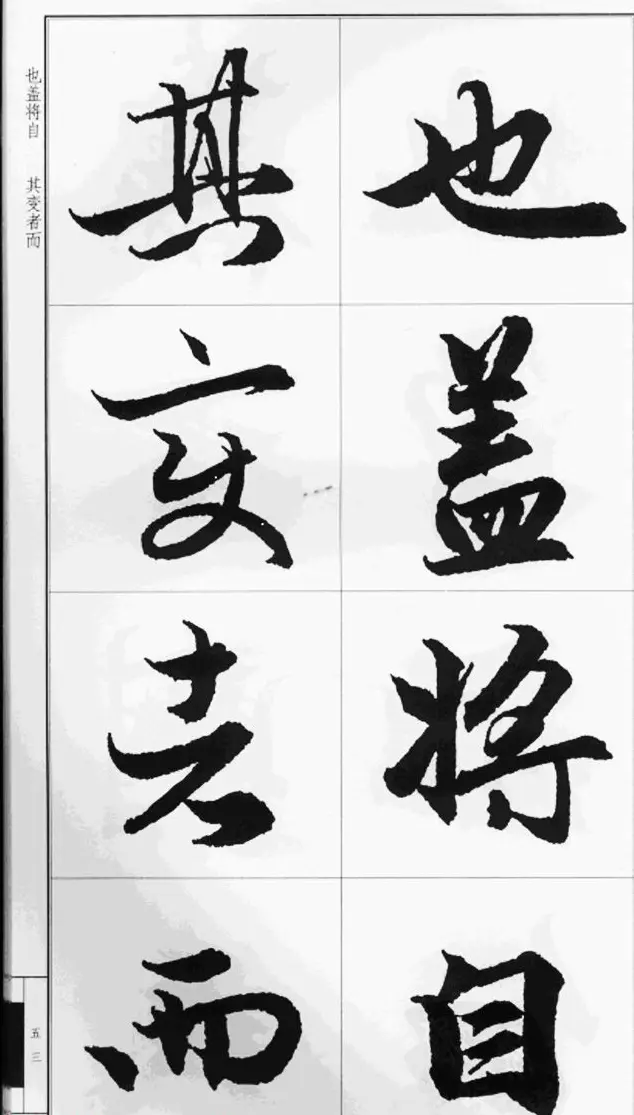 也盖将自
其变者而
也盖将自 其变者而
五三